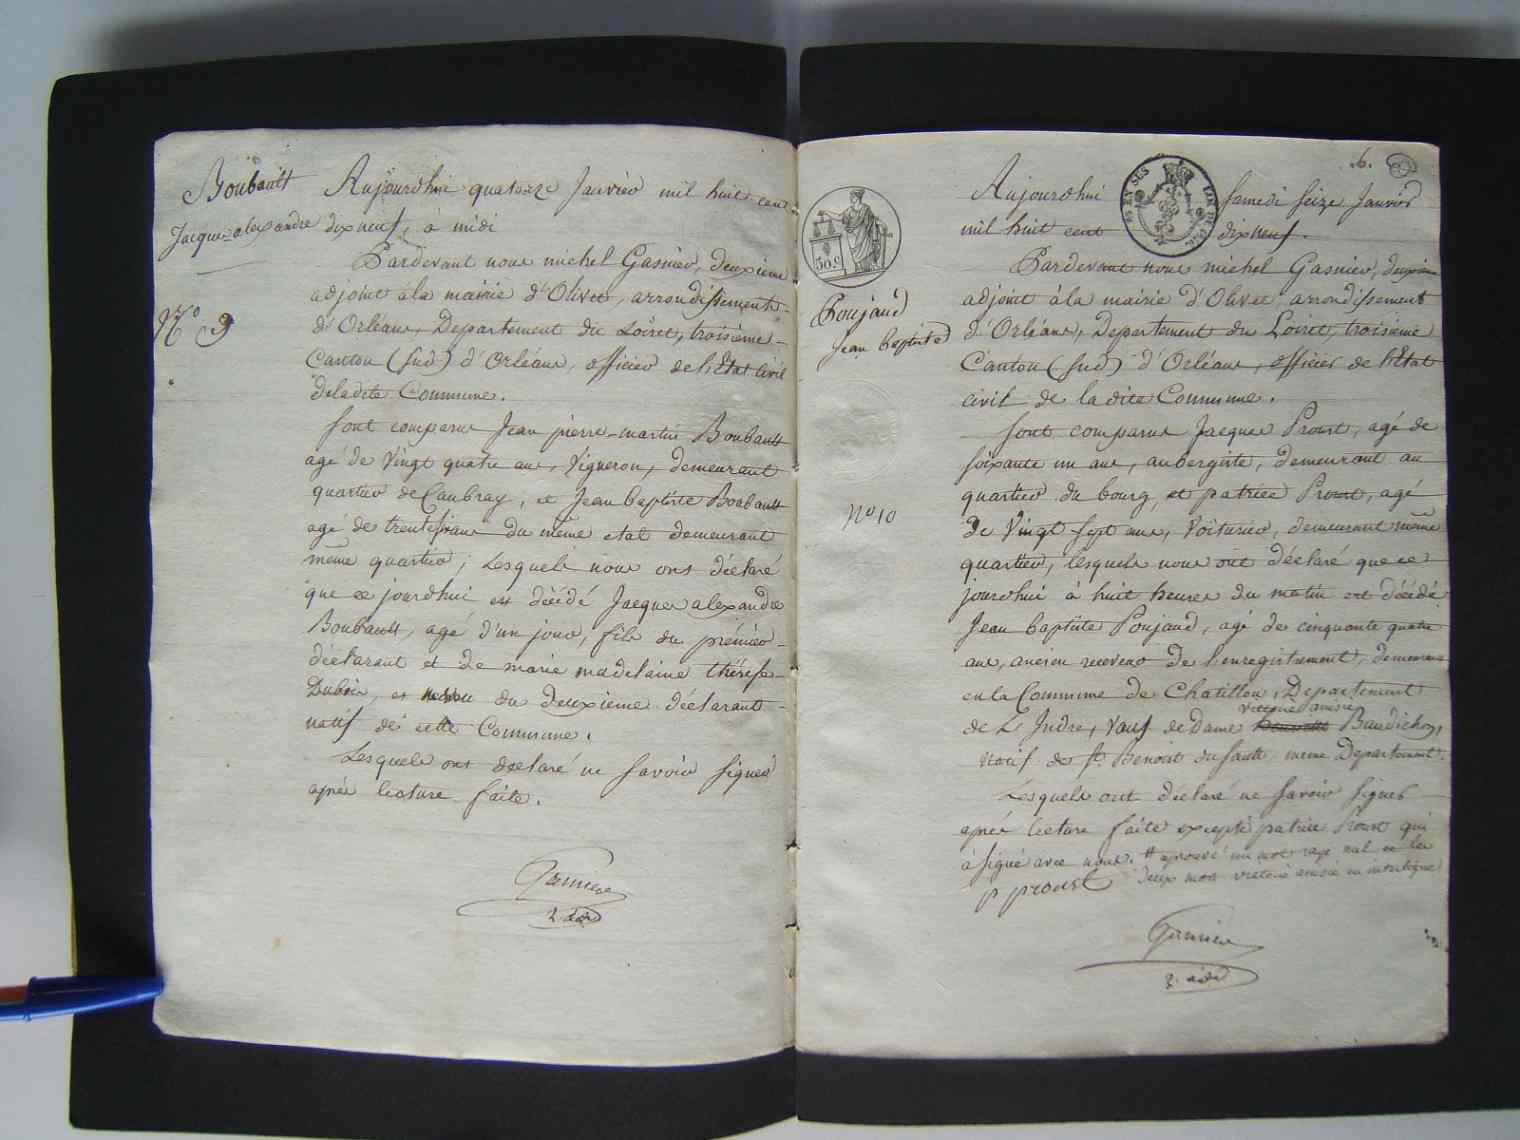 Boubault
Jacques alexandre
N.o 9
Aujourdhui quatorze Janvier mil huit cent
dix neuf, à midi
Pardevant nous michel Gasnier, deuxieme
adjoint à la mairie d'Olivet, arrondissement
d'Orléans, Departement du Loiret, troisième
Canton (Sud) d'Orléans, officier de l'Etat Civil
de ladite Commune.
Sont comparus Jean pierre-martin Boubault
agé de Vingt quatre ans, Vigneron, demeurant
quartier de Caubray, et Jean baptiste Boubault
agé de trente ans du même etat demeurant
même quartier; Lesquels nous ont déclaré
que ce jourdhui est décédé Jacques alexandre
Boubault, agé d'un jour, fils du prémier
déclarant et de marie madelaine thérese
Dubois, et neveu du deuxieme déclarant
natif de cette Commune.
Lesquels ont declaré ne Savoir Signer
après lecture faite.
Gasnier
2. adj
6.
Poujaud
Jean baptiste
No 10
509
Aujourdhui Samedi Seize Janvier
mil huit cent dix neuf.
Pardevant nous michel Gasnier, deuxieme
adjoint à la mairie d'Olivet, arrondissement
d'Orléans, Departement du Loiret, troisieme
Canton (Sud) d'Orléans, officier de l'Etat
civil de la dite Commune.
Sont comparus Jacques Proust, agé de
Soixante un ans, aubergiste, demeurant au
quartier du bourg, et patrice Proust, agé
de Vingt Sept ans, Voiturier, demeurant même
quartier, lesquels nous ont déclaré que ce
jourdhui à huit heures du matin est décédé
Jean baptiste Poujaud, agé de cinquante quatre
ans, ancien receveur de l'enregistrement, demeurant
en la Commune de Chatillon, Departement
victoire aimée
de L'Indre, Veuf de Dame Baudichon,
natif de St. Benoist du Sault même Departement.
Lesquels ont déclaré ne Savoir Signer
après lecture faite excepté patrice Proust qui
à Signé avec nous. # aprouvé un mot rayé nul et les
deux mots victoire aimée en interligne
p proust
Gasnier
2. adj